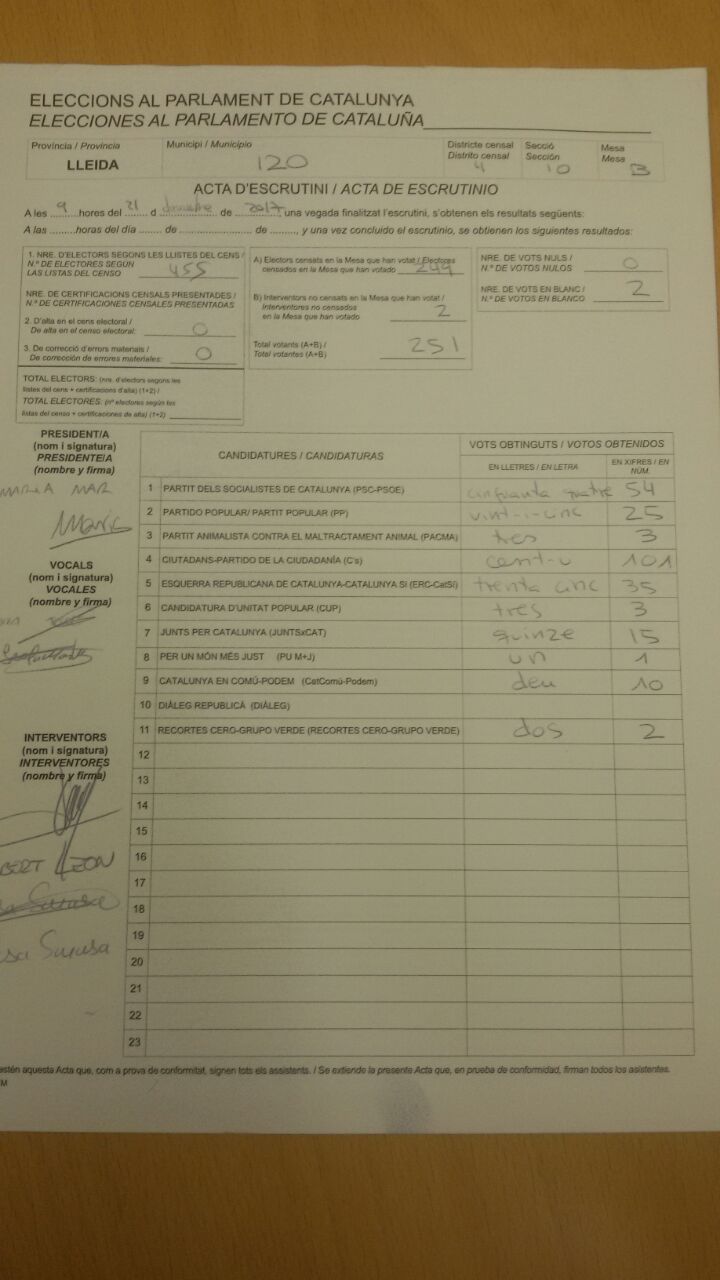 ELECCIONS AL PARLAMENT DE CATALUNYA
ELECCIONES AL PARLAMENTO DE CATALUÑA
Província / Provincia
LLEIDA
Municipi / Municipio
120
Districte censal
Distrito censal
4
Secció
Sección
10
Mesa
Mesa
B
ACTA D'ESCRUTINI / ACTA DE ESCRUTINIO
A les 9 hores del 21 d desembre de 2017 una vegada finalitzat l'escrutini, s'obtenen els resultats següents:
A las ......... horas del día ....... de ............... de ........, y una vez concluido el escrutinio, se obtienen los siguientes resultados:
1. NRE. D'ELECTORS SEGONS LES LLISTES DEL CENS /
N.º DE ELECTORES SEGÚN
LAS LISTAS DEL CENSO 455
NRE. DE CERTIFICACIONS CENSALS PRESENTADES /
N.º DE CERTIFICACIONES CENSALES PRESENTADAS
2. D'alta en el cens electoral /
De alta en el censo electoral: 0
3. De correcció d'errors materials /
De corrección de errores materiales: 0
TOTAL ELECTORS: (nre. d'electors segons les
llistes del cens + certificacions d'alta) (1+2) /
TOTAL ELECTORES: (nº electores según las
listas del censo + certificaciones de alta) (1+2)
A) Electors censats en la Mesa que han votat / Electores
censados en la Mesa que han votado 249
B) Interventors no censats en la Mesa que han votat /
Interventores no censados
en la Mesa que han votado 2
Total votants (A+B) /
Total votantes (A+B) 251
NRE. DE VOTS NULS /
N.º DE VOTOS NULOS 0
NRE. DE VOTS EN BLANC /
N.º DE VOTOS EN BLANCO 2
PRESIDENT/A
(nom i signatura)
PRESIDENTE/A
(nombre y firma)
MAR
VOCALS
(nom i signatura)
VOCALES
(nombre y firma)
INTERVENTORS
(nom i signatura)
INTERVENTORES
(nombre y firma)
CANDIDATURES / CANDIDATURAS
VOTS OBTINGUTS / VOTOS OBTENIDOS
EN LLETRES / EN LETRA
EN XIFRES / EN NÚM.
1 PARTIT DELS SOCIALISTES DE CATALUNYA (PSC-PSOE) cinquanta quatre 54
2 PARTIDO POPULAR/ PARTIT POPULAR (PP) vint-i-cinc 25
3 PARTIT ANIMALISTA CONTRA EL MALTRACTAMENT ANIMAL (PACMA) tres 3
4 CIUTADANS-PARTIDO DE LA CIUDADANÍA (C's) cent-u 101
5 ESQUERRA REPUBLICANA DE CATALUNYA-CATALUNYA SÍ (ERC-CatSí) trenta cinc 35
6 CANDIDATURA D'UNITAT POPULAR (CUP) tres 3
7 JUNTS PER CATALUNYA (JUNTSxCAT) quinze 15
8 PER UN MÓN MÉS JUST (PU M+J) un 1
9 CATALUNYA EN COMÚ-PODEM (CatComú-Podem) deu 10
10 DIÀLEG REPUBLICÀ (DIÀLEG)
11 RECORTES CERO-GRUPO VERDE (RECORTES CERO-GRUPO VERDE) dos 2
12
13
14
15
16
17
18
19
20
21
22
23
estén aquesta Acta que, com a prova de conformitat, signen tots els assistents. / Se extiende la presente Acta que, en prueba de conformidad, firman todos los asistentes.